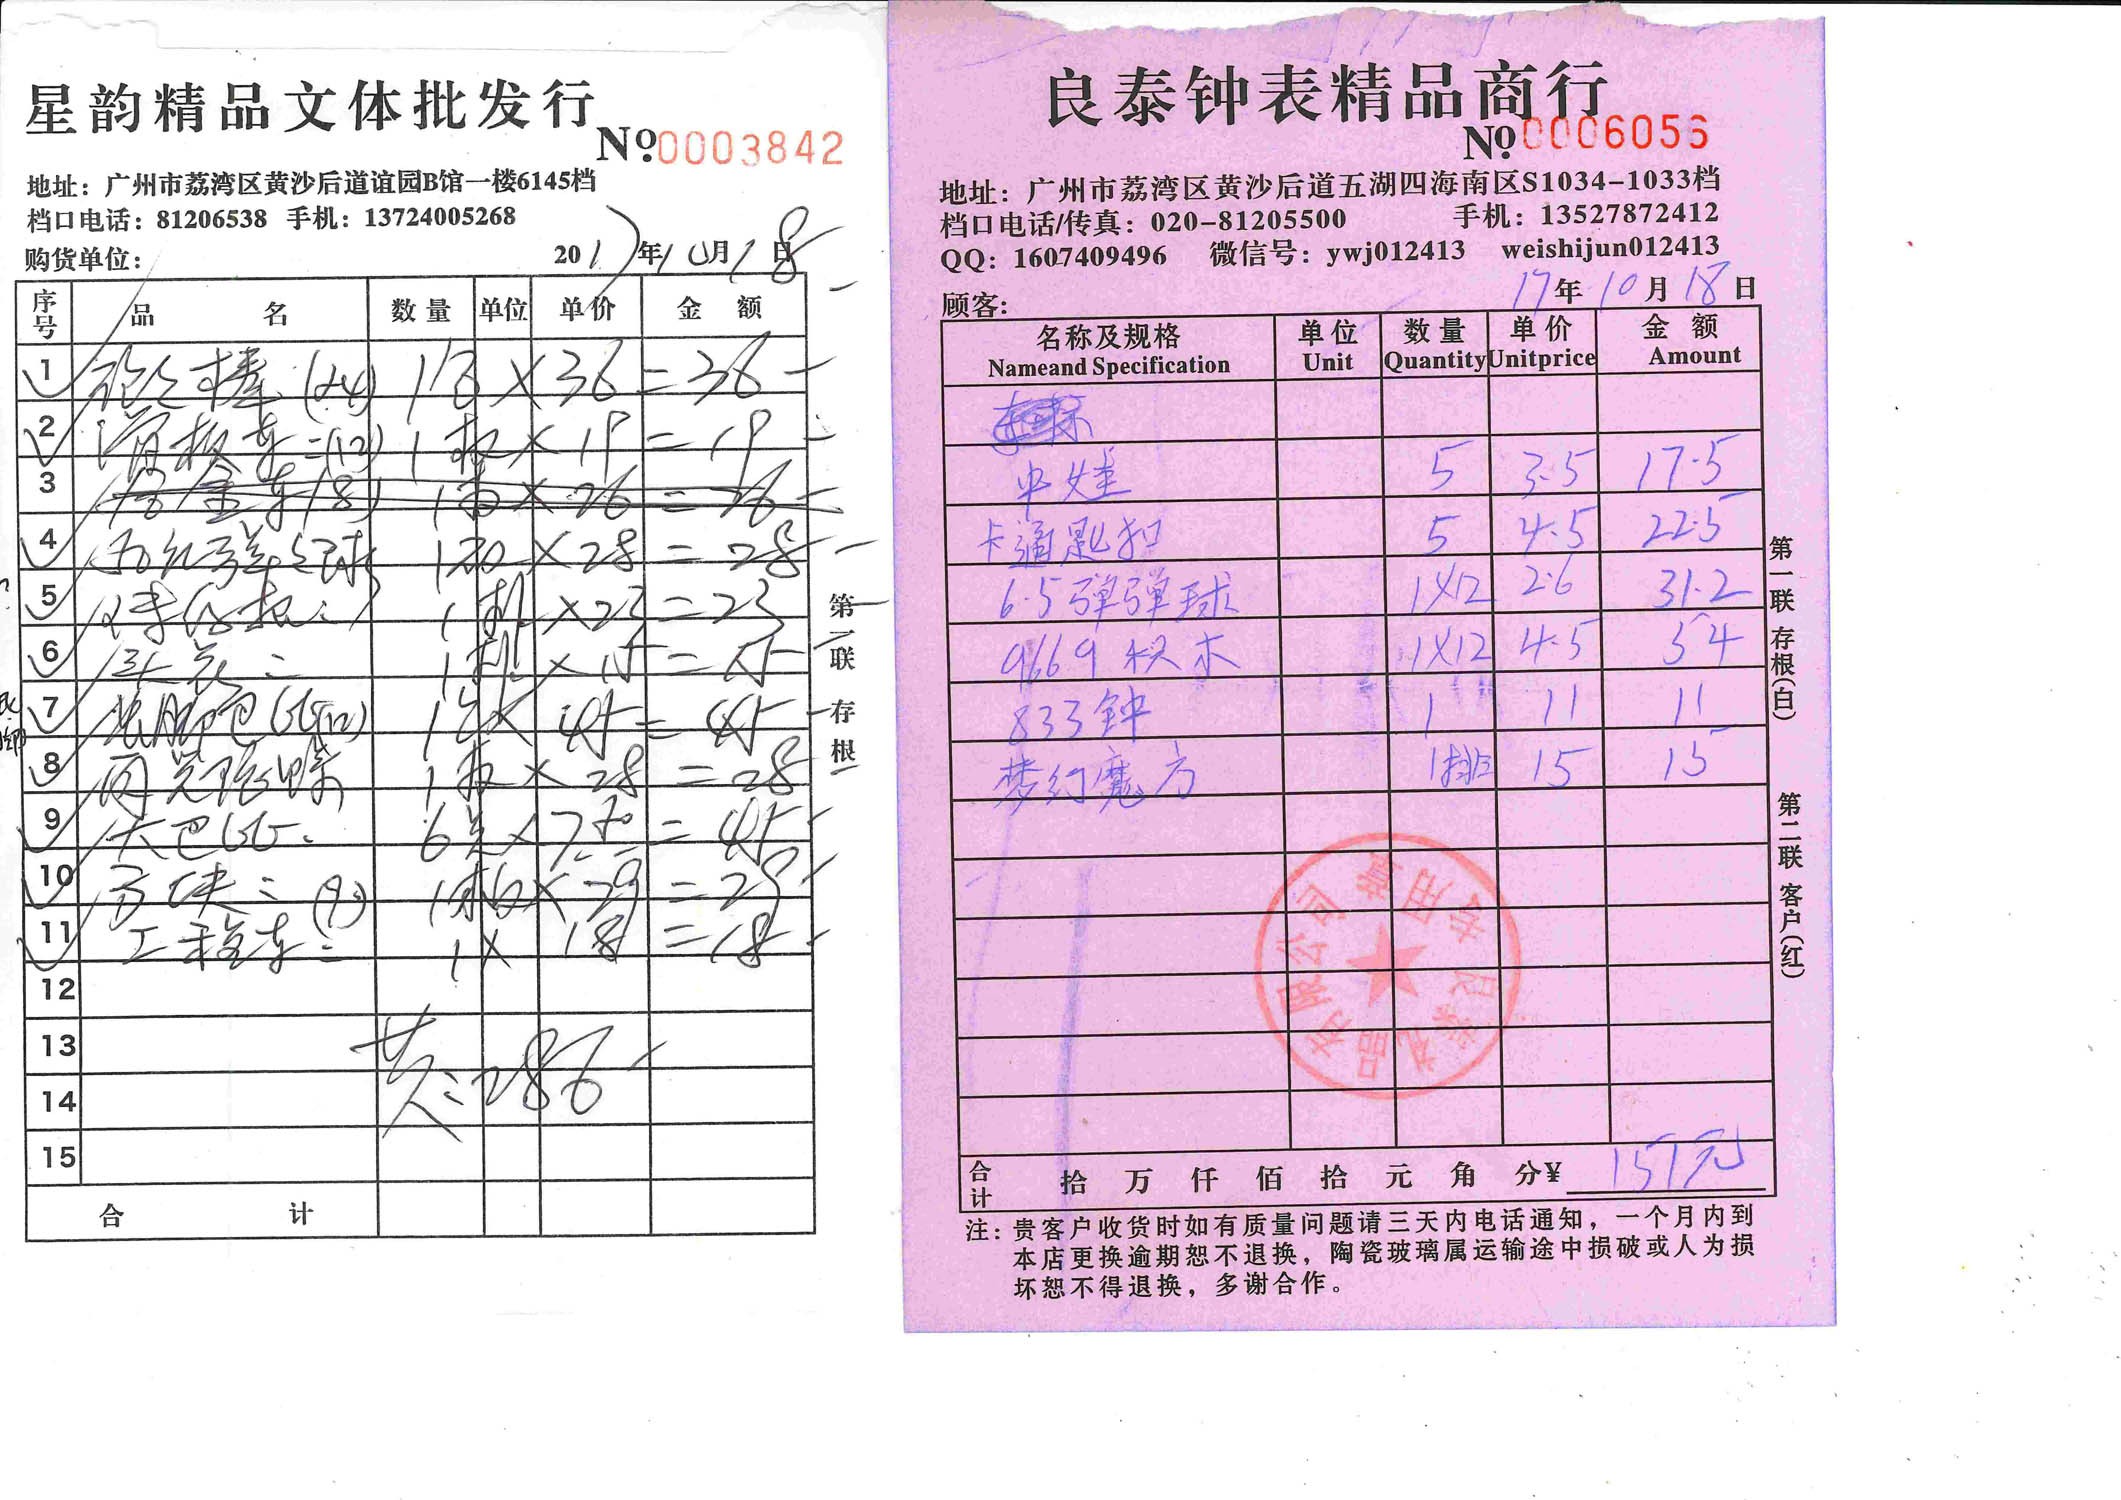 星韵精品文体批发行
№ 0003842
地址：广州市荔湾区黄沙后道谊园B馆一楼6145档
档口电话：81206538 手机：13724005268
购货单位： 2017年10月18日
序号 品名 数量 单位 单价 金额
1 棒(24) 1 × 36 = 36
2 滑板车=(12) 1板 × 19 = 19
3 车(8) 1 × 26 = 26
4 球 1 × 28 = 28
5 1 × 23 = 23
6 头花= 1 × 15 = 15
7 1 × 45 = 45
8 1板 × 28 = 28
9 大巴 6 × 7.50 = 45
10 方块= 1 × 29 = 29
11 工程车= 1 × 18 = 18
12
13
14
15
共：286
合计
第一联 存根
良泰钟表精品商行
№ 0006056
地址：广州市荔湾区黄沙后道五湖四海南区S1034-1033档
档口电话/传真：020-81205500 手机：13527872412
QQ：1607409496 微信号：ywj012413 weishijun012413
顾客： 17年10月18日
名称及规格 单位 数量 单价 金额
Nameand Specification Unit Quantity Unitprice Amount
中娃 5 3.5 17.5
卡通匙扣 5 4.5 22.5
6.5弹弹球 1X12 2.6 31.2
9669积木 1X12 4.5 54
833钟 1 11 11
梦幻魔方 1排 15 15
合计 拾 万 仟 佰 拾 元 角 分¥ 151元
注：贵客户收货时如有质量问题请三天内电话通知，一个月内到
本店更换逾期恕不退换，陶瓷玻璃属运输途中损破或人为损
坏恕不得退换，多谢合作。
第一联 存根(白)
第二联 客户(红)
品有限公司
专用章